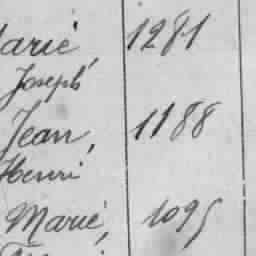 Marie, 1281
Joseph
Jean, 1188
Henri
Marie, 1095